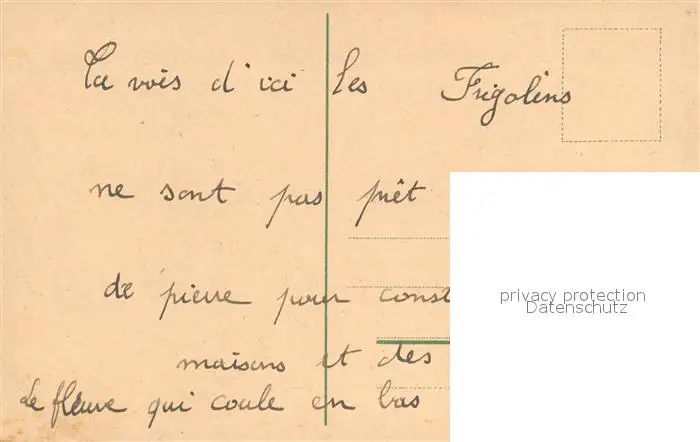 Tu vois d'ici les Frigolins
ne sont pas prêt
de pierre pour const
maisons et des
Le fleuve qui coule en bas
privacy protection
Datenschutz